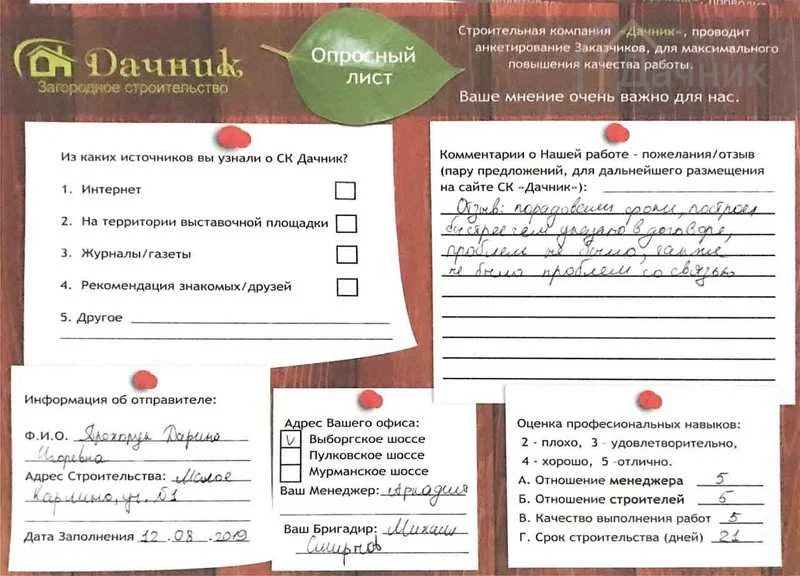 Дачник
Загородное строительство
Опросный
лист
Строительная компания «Дачник», проводит
анкетирование Заказчиков, для максимального
повышения качества работы.
Дачник
Ваше мнение очень важно для нас.
Из каких источников вы узнали о СК Дачник?
1. Интернет
2. На территории выставочной площадки
3. Журналы/газеты
4. Рекомендация знакомых/друзей
5. Другое
Комментарии о Нашей работе - пожелания/отзыв
(пару предложений, для дальнейшего размещения
на сайте СК «Дачник»):
Отзыв: порадовали сроки, построен
быстрее чем указано в договоре,
проблем не было, также
не было проблем со связью
Информация об отправителе:
Ф.И.О. Дарина
Игоревна
Адрес Строительства: Малое
Карлино, уч. 61
Дата Заполнения 12.08.2019
Адрес Вашего офиса:
V Выборгское шоссе
Пулковское шоссе
Мурманское шоссе
Ваш Менеджер: Аркадий
Ваш Бригадир: Михаил
Смирнов
Оценка професиональных навыков:
2 - плохо, 3 - удовлетворительно,
4 - хорошо, 5 -отлично.
А. Отношение менеджера 5
Б. Отношение строителей 5
В. Качество выполнения работ 5
Г. Срок строительства (дней) 21